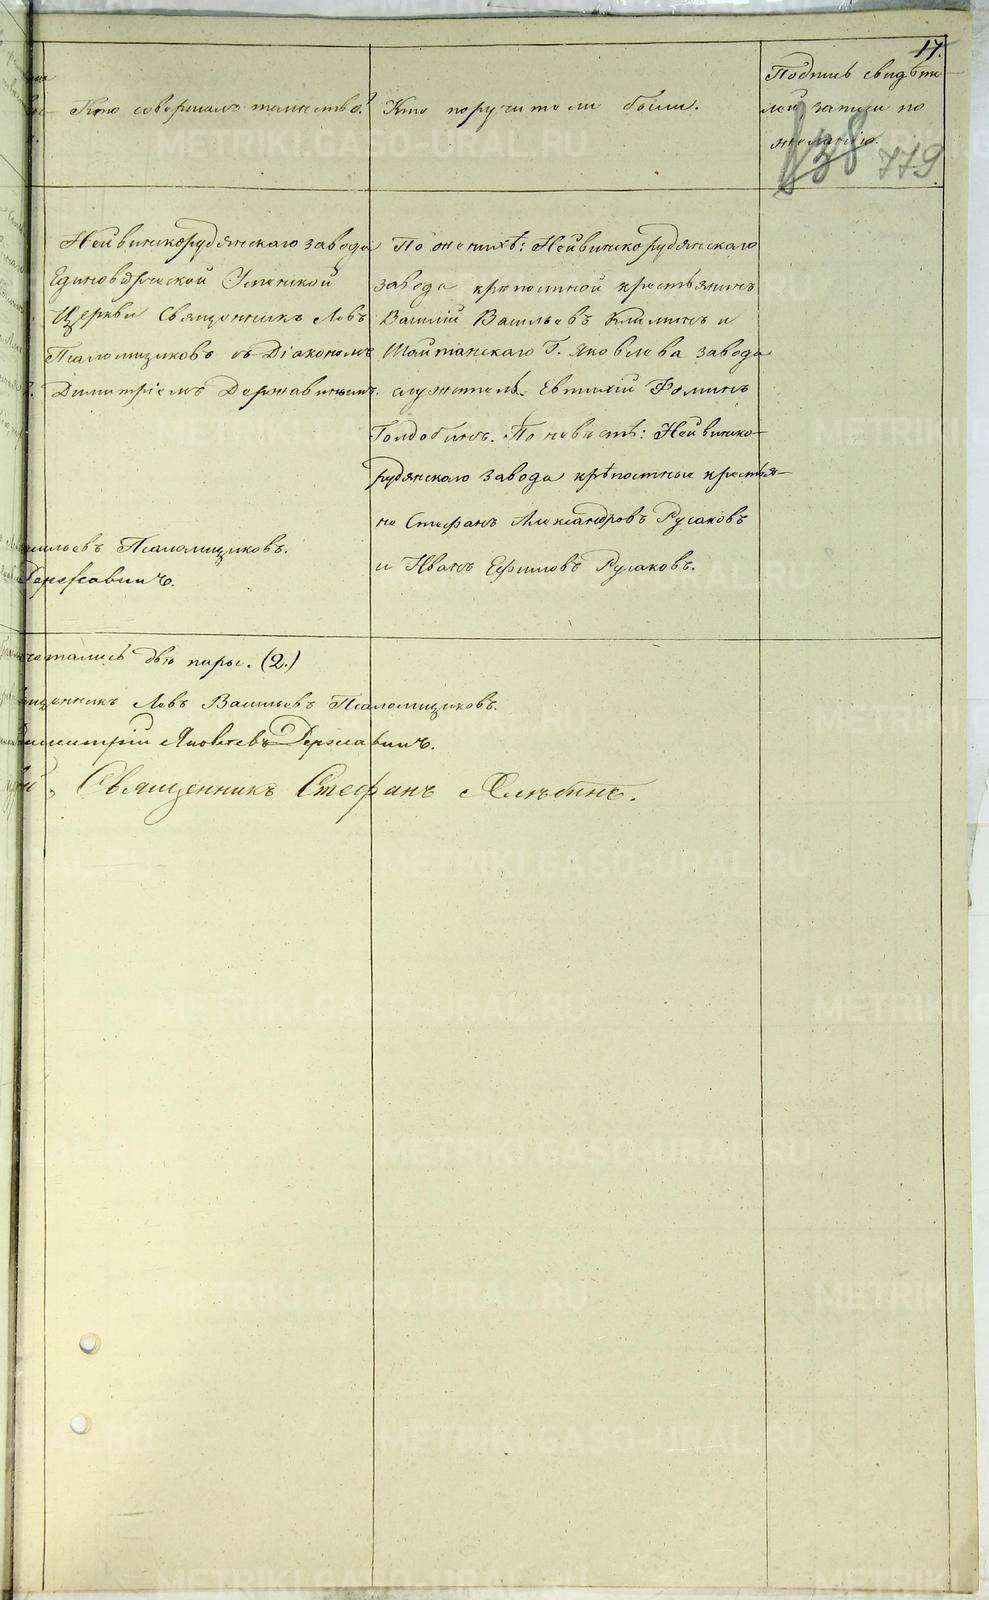 17.
Кто совершалъ таинство?
Кто поручители были.
Подпись свидѣте-
лей записи по
желанію.
138 779
Нейвинскорудянскаго завода
Единовѣрческой Успенской
Церкви Священникъ Левъ
Псаломщиковъ съ Діакономъ
Димитріемъ Державинымъ.
По женихѣ: Нейвинскорудянскаго
завода крѣпостной крестьянинъ
Василій Васильевъ Климинъ и
Шайтанскаго Г. Яковлева завода
служитель Евтихій Фоминъ
Голдобинъ. По невѣстѣ: Нейвинско-
рудянскаго завода крѣпостные крестья-
не Стефанъ Александровъ Русаковъ
и Иванъ Ефимовъ Русаковъ.
сильевъ Псаломщиковъ.
Державинъ.
четались двѣ пары. (2.)
щенникъ Левъ Васильевъ Псаломщиковъ.
Димитрій Яковлевъ Державинъ.
Священникъ Стефанъ
METRIKI.GASO-URAL.RU